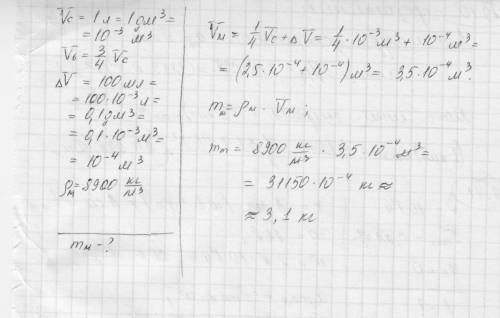 Vc = 1 л = 1 дм³ =
= 10⁻³ м³
Vв = 3/4 Vc
ΔV = 100 мл =
= 100·10⁻³ л =
= 0,1 дм³ =
= 0,1·10⁻³ м³ =
= 10⁻⁴ м³
ρм = 8900 кг/м³
mм - ?
Vм = 1/4 Vc + ΔV = 1/4 · 10⁻³ м³ + 10⁻⁴ м³ =
= (2,5·10⁻⁴ + 10⁻⁴) м³ = 3,5·10⁻⁴ м³.
mм = ρм · Vм ;
mм = 8900 кг/м³ · 3,5·10⁻⁴ м³ =
= 31150·10⁻⁴ кг ≈
≈ 3,1 кг